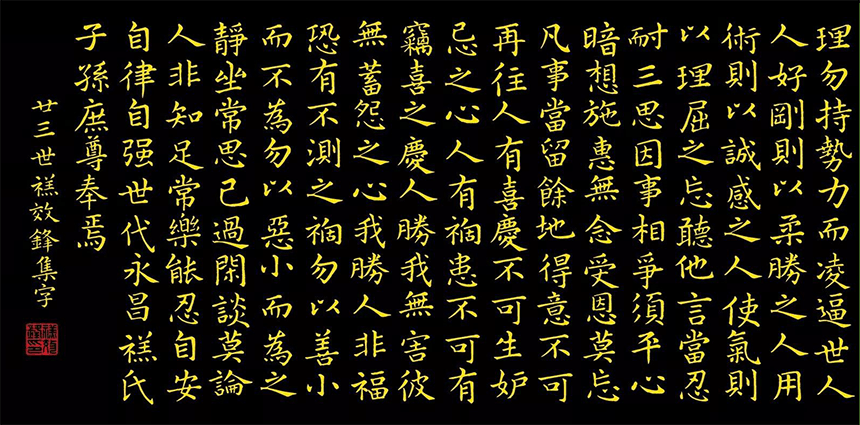 理勿持勢力而凌逼世人
人好剛則以柔勝之人用
術則以誠感之人使氣則
以理屈之忘聽他言當忍
耐三思因事相爭須平心
暗想施惠無念受恩莫忘
凡事當留餘地得意不可
再往人有喜慶不可生妒
忌之心人有禍患不可有
竊喜之慶人勝我無害彼
無蓄怨之心我勝人非福
恐有不測之禍勿以善小
而不為勿以惡小而為之
靜坐常思己過閑談莫論
人非知足常樂能忍自安
自律自强世代永昌禚氏
子孫庶尊奉焉
廿三世禚效鋒集字